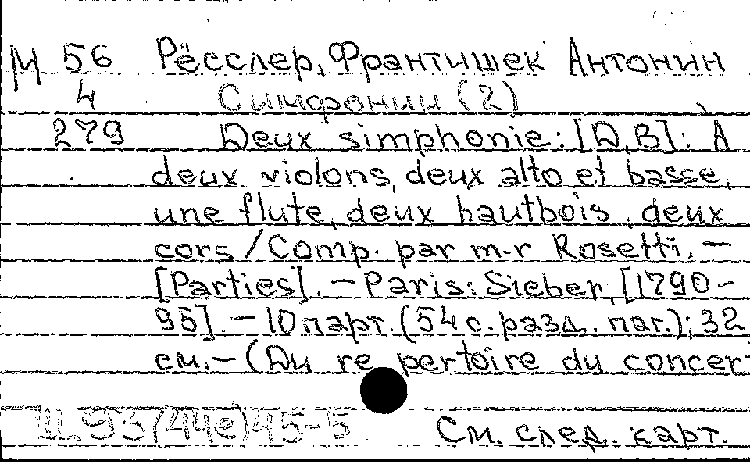 М 56 Рёсслер, Франтишек Антонин
4 Симфонии (2)
279 Deux simphonie: [D,B]: A
deux violons, deux alto et basse,
une flute, deux hautbois, deux
cors / Comp. par m-r Rosetti. —
[Parties]. — Paris: Sieber, [1790-
95]. — 10 парт. (54 с. разд. паг.); 32
см. — (Du re pertoire du concer
Ц 93(44е)45-5 См. след. карт.